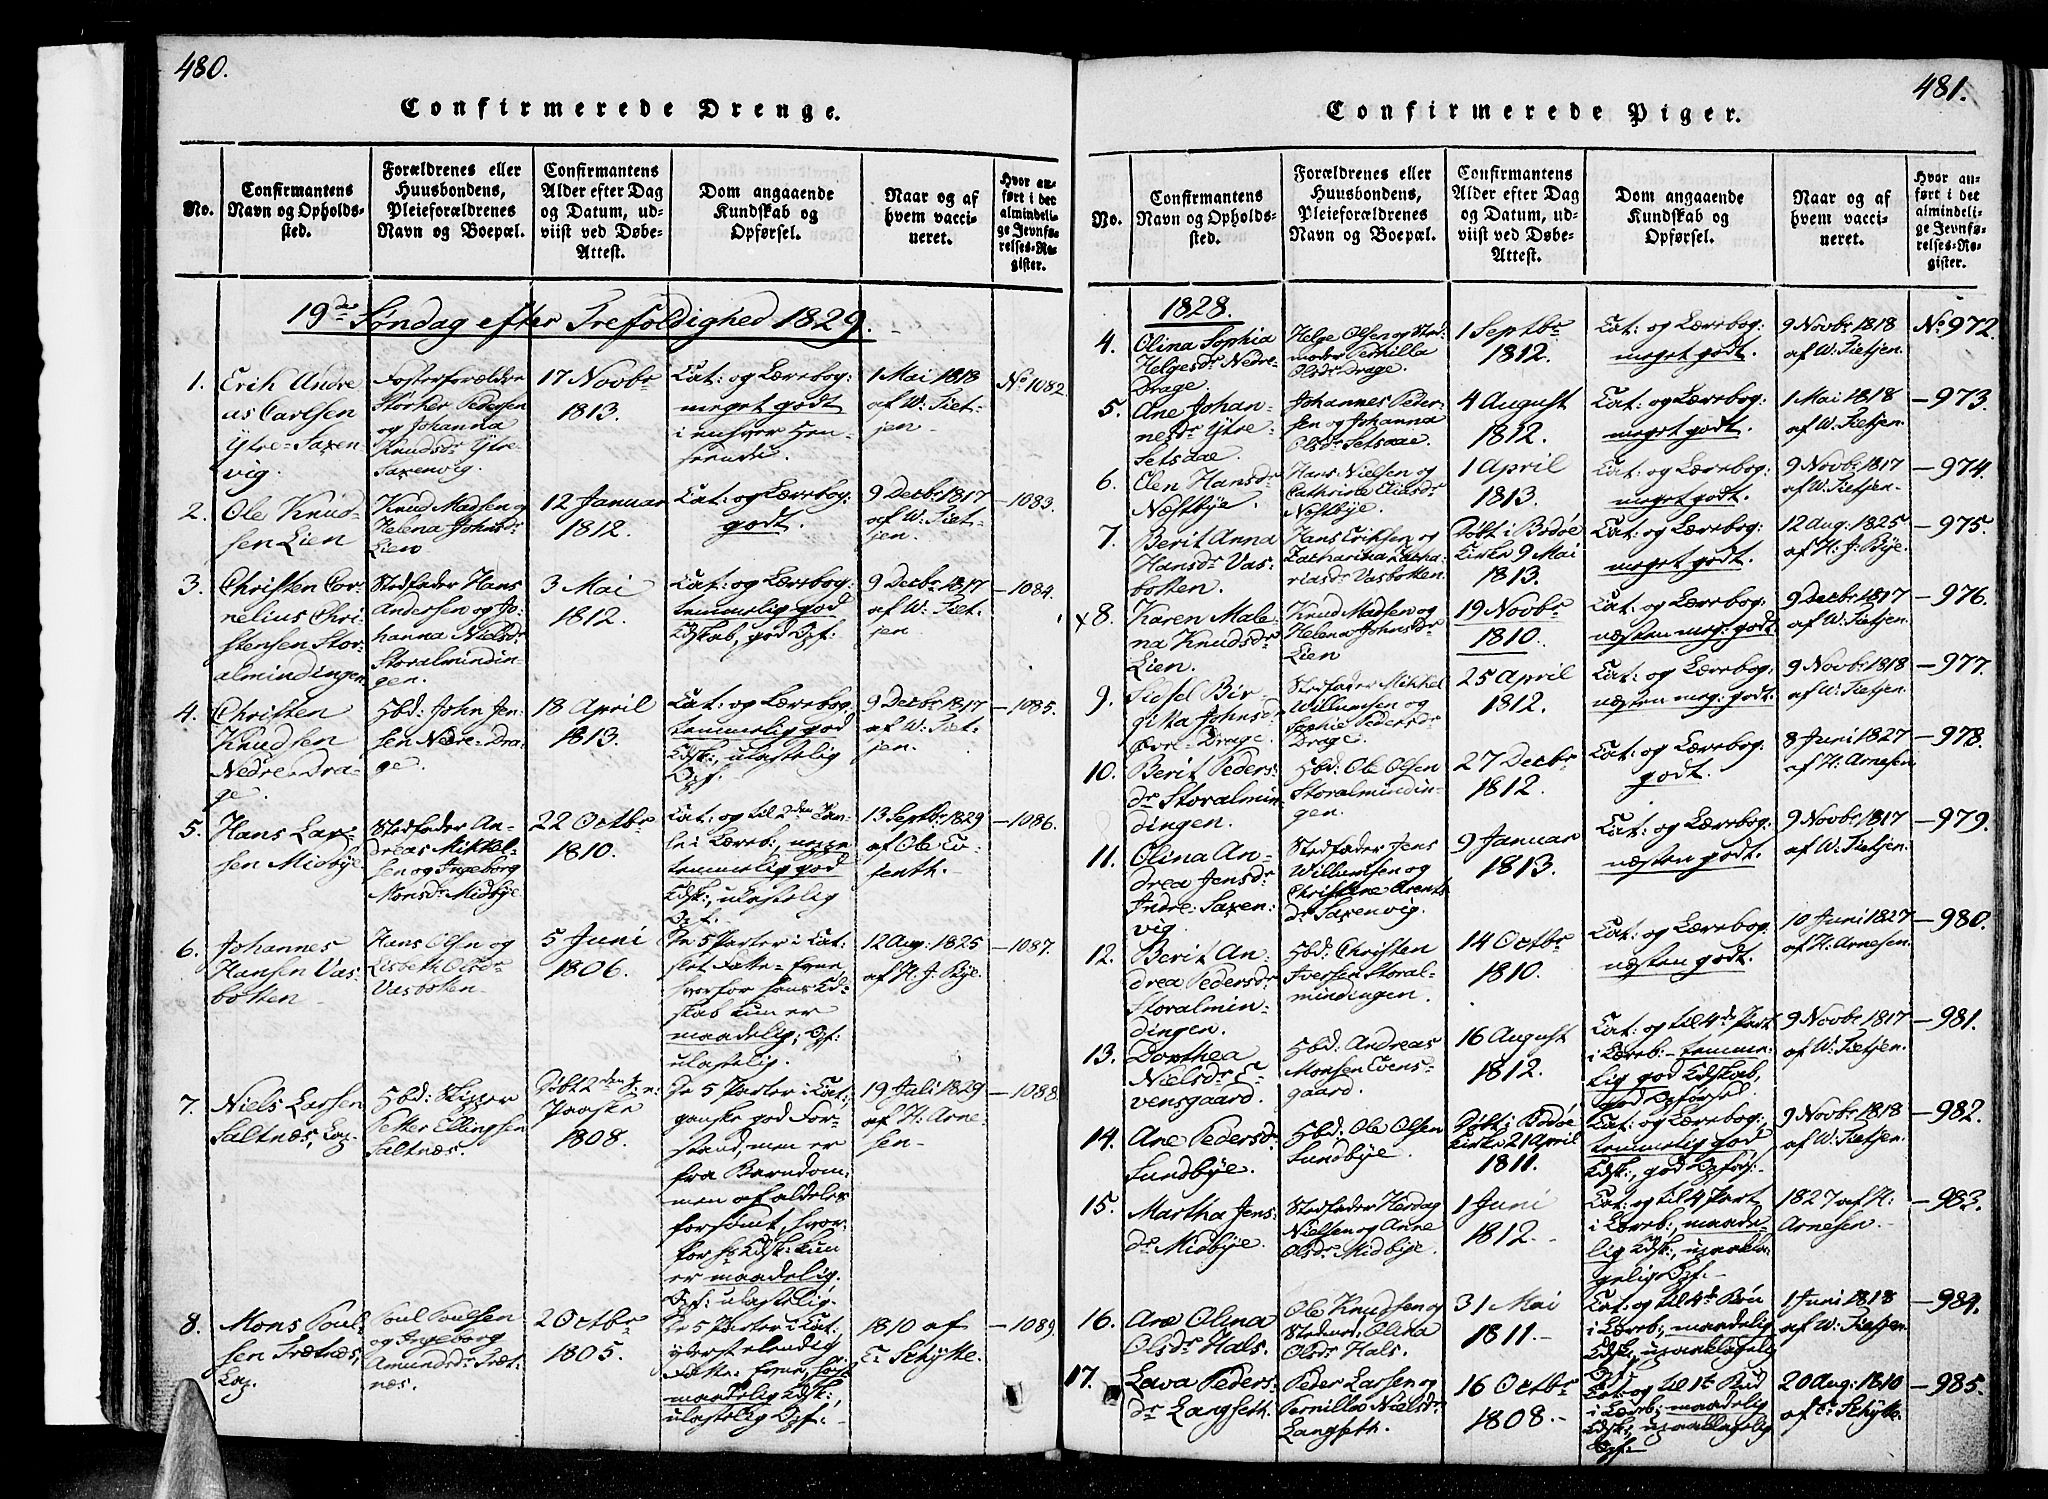 480.
Confirmerede Drenge.
No.
Confirmantens
Navn og Opholds-
sted.
Forældrenes eller
Huusbondens,
Pleieforældrenes
Navn og Boepæl.
Confirmantens
Alder efter Dag
og Datum, ud-
viist ved Døbe-
Attest.
Dom angaaende
Kundskab og
Opførsel.
Naar og af
hvem vacci-
neret.
Hvor an-
ført i det
almindeli-
ge Jevnfø-
relses-Re-
gister.
19de Søndag efter Trefoldighed 1829.
1.
Erik Andre
as Carlsen
Ytre-Saxen
vig.
Fosterforældre
Størker Pedersen
og Johanna
Knudsdr Ytre-
Saxenvig.
17 Novbr
1813.
Cat: og Lærebog:
meget godt
i enhver Hen-
seende.
1 Mai 1818
af W: Tiet-
jen
No 1082.
2.
Ole Knud-
sen Lien
Knud Madsen og
Helena Johnsdr
Lien
12 Januar
1812.
Cat: og Lærebog:
godt.
9 Decbr 1817
af W: Tiet-
jen.
—1083.
3.
Christen Cor-
nelius Chri-
stensen Stor-
almindingen
Stedfader Hans
Andersen og Jo-
hanna Nielsdr
Storalmindin-
gen.
3 Mai
1812.
Cat: og Lærebog:
temmelig god
Kdskab, god Opf:
9 Decbr 1817
af W: Tiet-
jen
—1084.
4.
Christen
Knudsen
Nedre-Dra-
ge.
Hbd: John Jen-
sen Nedre-Dra-
ge.
18 April
1813.
Cat: og Lærebog
temmelig god
Kdsk:, ulastelig
Opf.
9 Decbr 1817
af W: Tiet-
jen.
—1085.
5.
Hans Lar-
sen Midbÿe
Stedfader An-
dreas Mikkel-
sen og Ingeborg
Monsdr Midbÿe
22 Octbr
1810.
Cat: og til 2den
i Læreb:,
temmelig god
Kdsk:, ulastelig
Opf.
13 Septbr 1829
af Ole To-
senth.
—1086.
6.
Johannes
Hansen Vas-
botten
Hans Olsen og
Lisbeth Olsdr
Vasbotten.
5 Juni
1806.
De 5 Parter i Cat:
slet Fatte-Evne
hvorfor hans Kd-
skab kun er
maadelig; Opf:
ulastelig.
12 Aug: 1825
af H. J. Bÿe.
—1087.
7.
Niels Larsen
Saltnæs, Lap.
Hbd: Skipper
Petter Ellingsen
Saltnæs.
Døbt 2den
Paaske
1808.
De 5 Parter i Cat:,
ganske god For-
stand, men er
fra Barndom-
men af aldeles
forsømt, hvor-
for Hs Kdsk: kun
er maadelig.
Opf: ulastelig.
19 Juli 1829
af H: Arne-
sen—
—1088.
8.
Mons Poul-
sen Trætnæs,
Lap.
Poul Poulsen
og Ingeborg
Amundsdr Træt-
næs.
2 Octbr
1805.
De 5 Parter i Cat:
yderst elendig
Fatte-Evne,
maadelig Kdsk:,
ulastelig Opf:—
1810 af
C. Schÿtte.
—1089.
481.
Confirmerede Piger.
No.
Confirmantens
Navn og Opholds-
sted.
Forældrenes eller
Huusbondens,
Pleieforældrenes
Navn og Boepæl.
Confirmantens
Alder efter Dag
og Datum, ud-
viist ved Døbe-
Attest.
Dom angaaende
Kundskab og
Opførsel.
Naar og af
hvem vacci-
neret.
Hvor an-
ført i det
almindeli-
ge Jevnfø-
relses-Re-
gister.
1828.
4.
Olina Sophia
Helgesdr Nedre-
Drage.
Helge Olsen og Sted-
moder Pernilla
Olsdr Drage.
1 Septbr
1812.
Cat: og Lærebog:
meget godt.
9 Novbr 1818
af W: Tietjen.
No 972.
5.
Ane Johan-
nesdr Ytre-
Setsaae.
Johannes Peder-
sen og Johanna
Olsdr Setsaae.
4 August
1812.
Cat: og Lærebog:
meget godt.
1 Mai 1818
af W: Tietjen.
—973.
6.
Elen Hansdr
Næstbÿe.
Hans Nielsen og
Cathrine Eliesdr
Næstbÿe.
1 April
1813.
Cat: og Lærebog:
meget godt.
9 Novbr 1817
af W: Tietjen.
—974.
7.
Berit Anna
Hansdr Vas-
botten.
Hans Eriksen og
Catharina Zacha-
riasdr Vasbotten.
Døbt i Bodøe
Kirke 9 Mai
1813.
Cat: og Lærebog:
meget godt.
12 Aug: 1825
af H: J: Bÿe.
—975.
×8.
Karen Male-
na Knudsdr
Lien.
Knud Madsen og
Helena Johnsdr
Lien
19 Novbr
1810.
Cat: og Lærebog:
næsten meg: godt.
9 Decbr 1817
af W: Tietjen.
—976.
9.
Sidsel Bir-
gitta Johnsdr
Øvre-Drage.
Stedfader Mikkel
Willumsen og
Sophie Pedersdr
Drage.
25 April
1812.
Cat: og Lærebog:
næsten meg: godt.
9 Novbr 1818
af W: Tietjen.
—977.
10.
Berit Peders-
dr Storalmin-
dingen.
Hbd: Ole Olsen
Storalmindin-
gen.
27 Decbr
1812.
Cat: og Lærebog:
godt.
8 Juni 1827
af H: Arnesen.
—978.
11.
Olina An-
drea Jensdr
Indre-Saxen-
vig.
Stedfader Jens
Willumsen og
Christine Arents
dr Saxenvig.
9 Januar
1813.
Cat: og Lærebog:
næsten godt.
9 Novbr 1817
af W: Tietjen.
—979.
12.
Berit An-
drea Pedersdr
Storalmin-
dingen.
Hbd: Christen
Iversen Storal-
mindingen.
14 Octbr
1810.
Cat: og Lærebog
næsten godt.
10 Juni 1827
af H: Arnesen.
—980.
13.
Dorthea
Nielsdr E-
vensgaard.
Hbd: Andreas
Monsen Evens-
gaard.
16 August
1812.
Cat: og til 4de Part
i Læreb:— temme-
lig god Kdskab,
god Opførsel.
9 Novbr 1817
af W: Tietjen.
—981.
14.
Ane Pedersdr
Sundbÿe.
Hbd: Ole Olsen
Sundbÿe.
Døbt i Bodøe
Kirke 21 April
1811.
Cat: og Lærebog:
temmelig god
Kdsk:, god Opførs:.
9 Novbr 1818
af W: Tietjen.
—982.
15.
Martha Jens-
dr Midbÿe.
Stedfader Herdag
Nielsen og Anne
Olsdr Midbÿe.
1 Juni
1812.
Cat: og til 4 Part
i Læreb:, maade-
lig Kdsk:, upaakla-
gelig Opf:—
1827 af H:
Arnesen.
—983.
16.
Ane Olina
Olsdr Hals.
Ole Knudsen og
Stedmr. Olina
Olsdr Hals.
31 Mai
1811.
Cat: og til 4de Bøn
i Læreb:, maadelig
Kdsk:, upaaklagelig
Opf:
1 Juni 1818
af W: Tietjen.
—984.
17.
Lava Peders-
dr Langseth.
Peder Larsen og
Pernilla Nielsdr
Langseth.
16 Octbr
1808.
Cat: og til 1ste Bud
i Læreb:, maadelig
Kdsk:, upaaklagelig
Opf:
20 Aug: 1810
af C: Schÿtte.
—985.